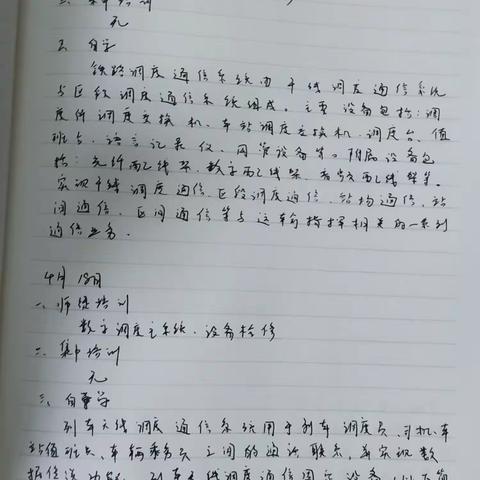 二. 集中培训
无
三. 自学
铁路调度通信系统由干线调度通信系统
与区段调度通信系统组成。主要设备包括:调
度所调度交换机、车站调度交换机、调度台、值
班台、语言记录仪、网管设备等。附属设备包
括:光纤配线架、数字配线架、音频配线架等。
实现干线调度通信、区段调度通信、站场通信、站
间通信、区间通信等与运输指挥相关的一系列
通信业务。
4月18日
一、师徒培训
数字调度主系统、设备检修
二、集中培训
无
三、自学
列车无线调度通信系统用于列车调度员、司机、车
站值班员、车辆乘务员之间的通话联系,并实现数
据传送功能。列车无线调度通信固定设备